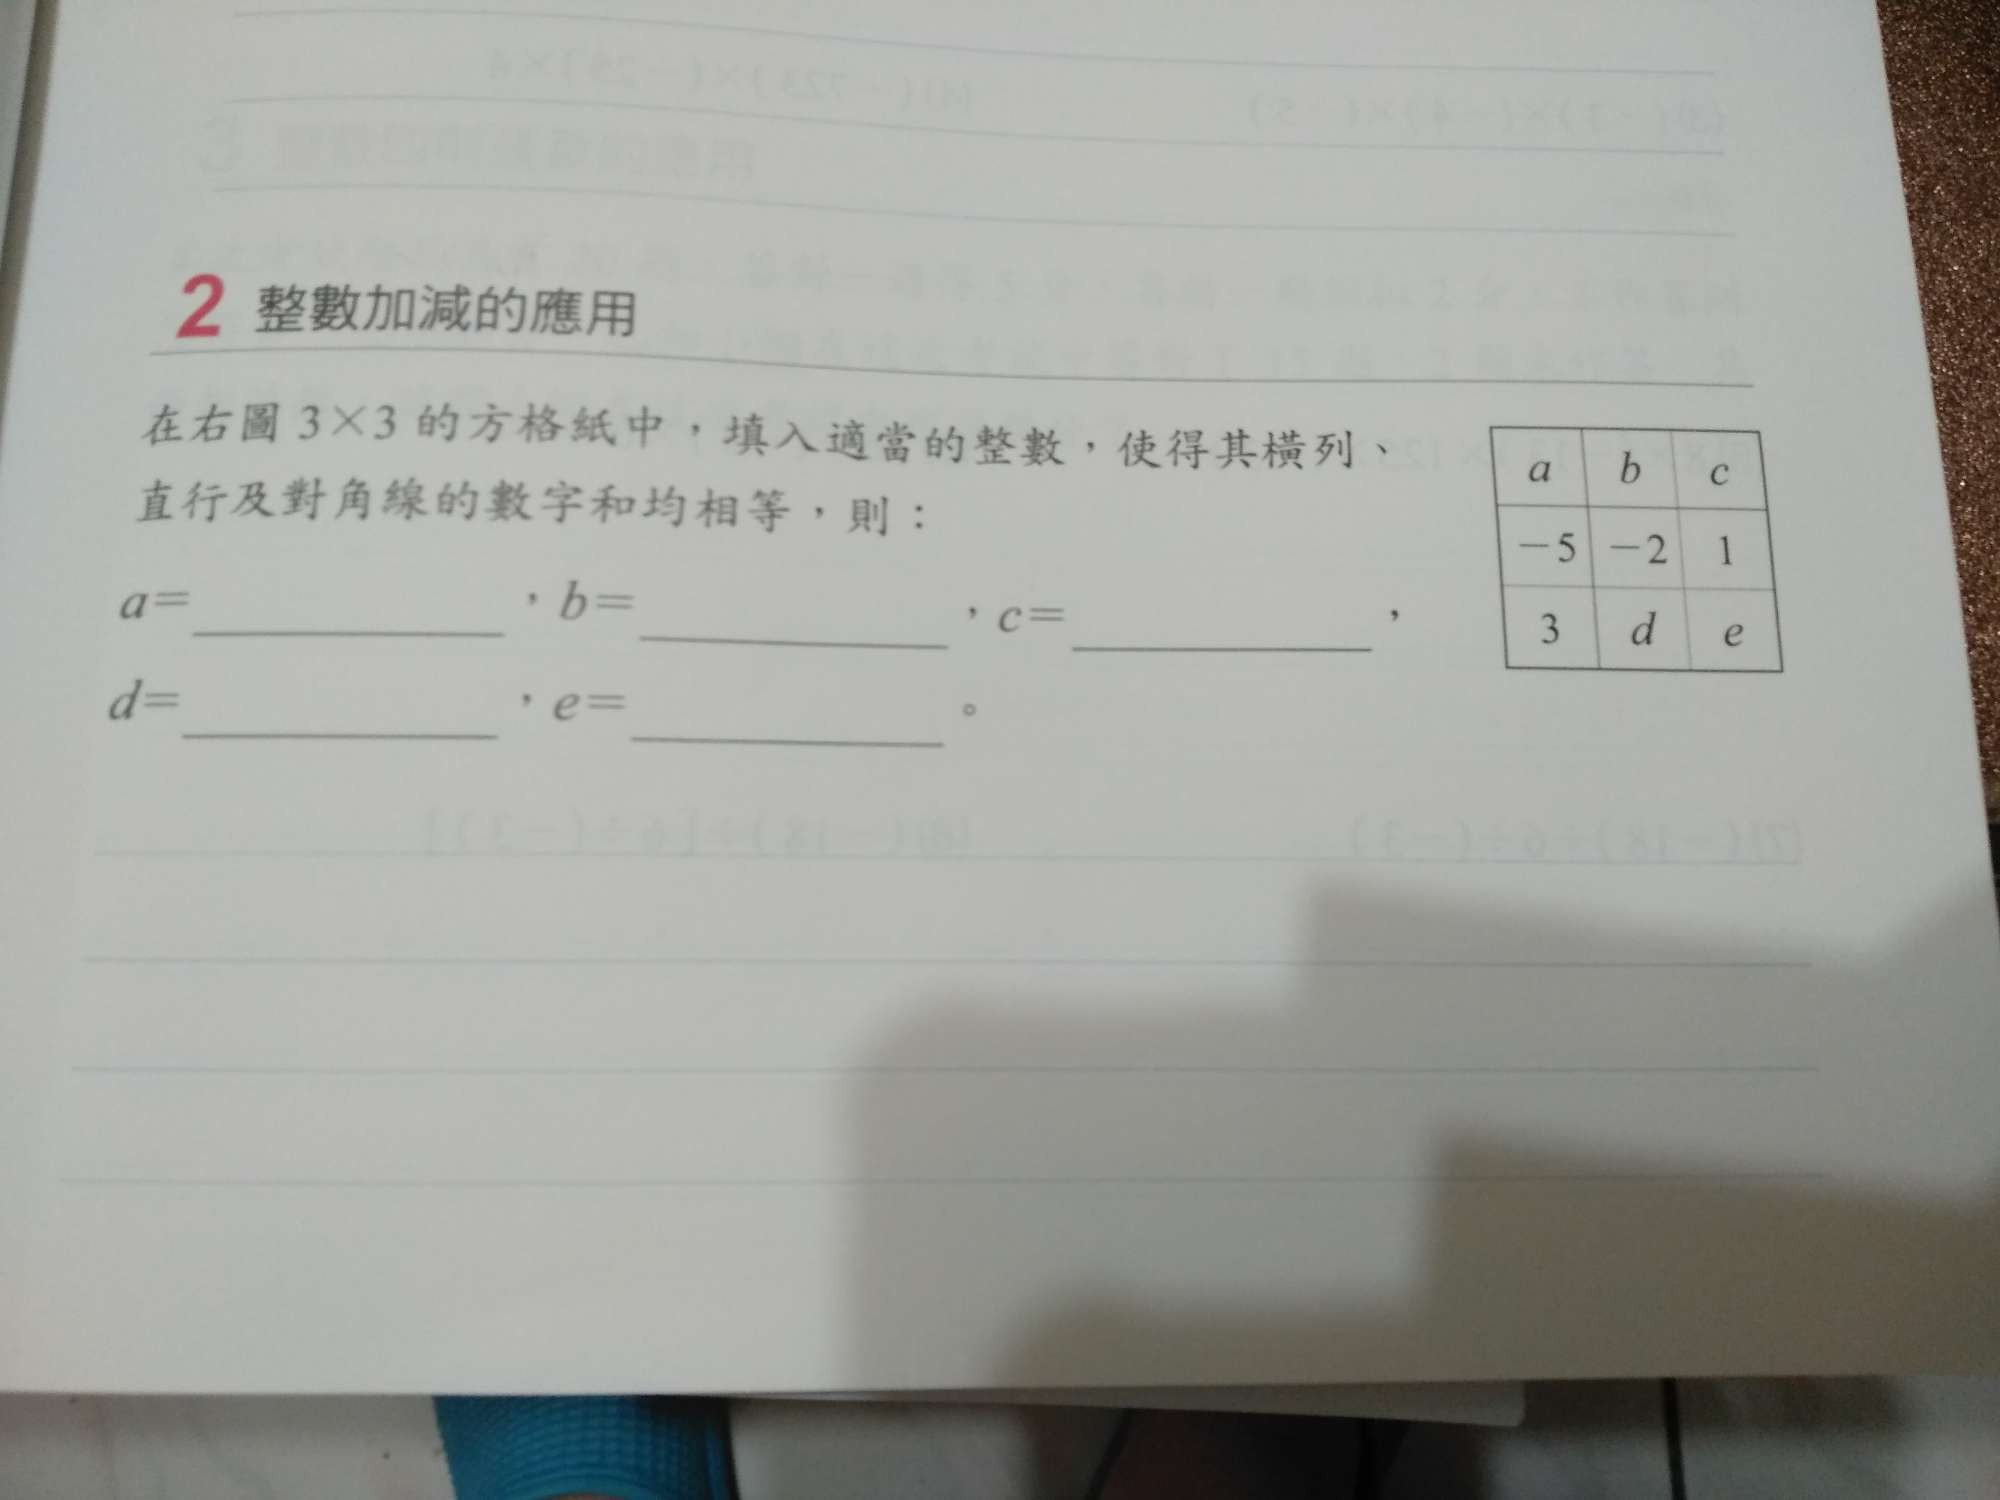 2 整數加減的應用
在右圖 3×3 的方格紙中，填入適當的整數，使得其橫列、
直行及對角線的數字和均相等，則：
a=＿＿＿，b=＿＿＿，c=＿＿＿，
d=＿＿＿，e=＿＿＿。
a b c
－5 －2 1
3 d e